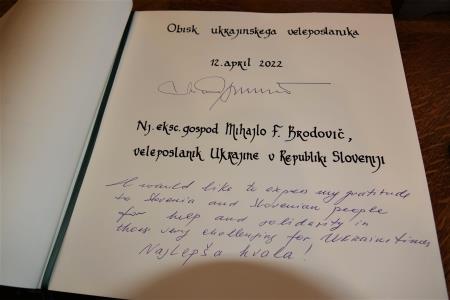 Obisk ukrajinskega veleposlanika
12. april 2022
Nj. eksc. gospod Mihajlo F. Brodovič,
veleposlanik Ukrajine v Republiki Sloveniji
I would like to express my gratitude
to Slovenia and Slovenian people
for help and solidarity in
those very challenging for Ukraine times
Najlepša hvala!